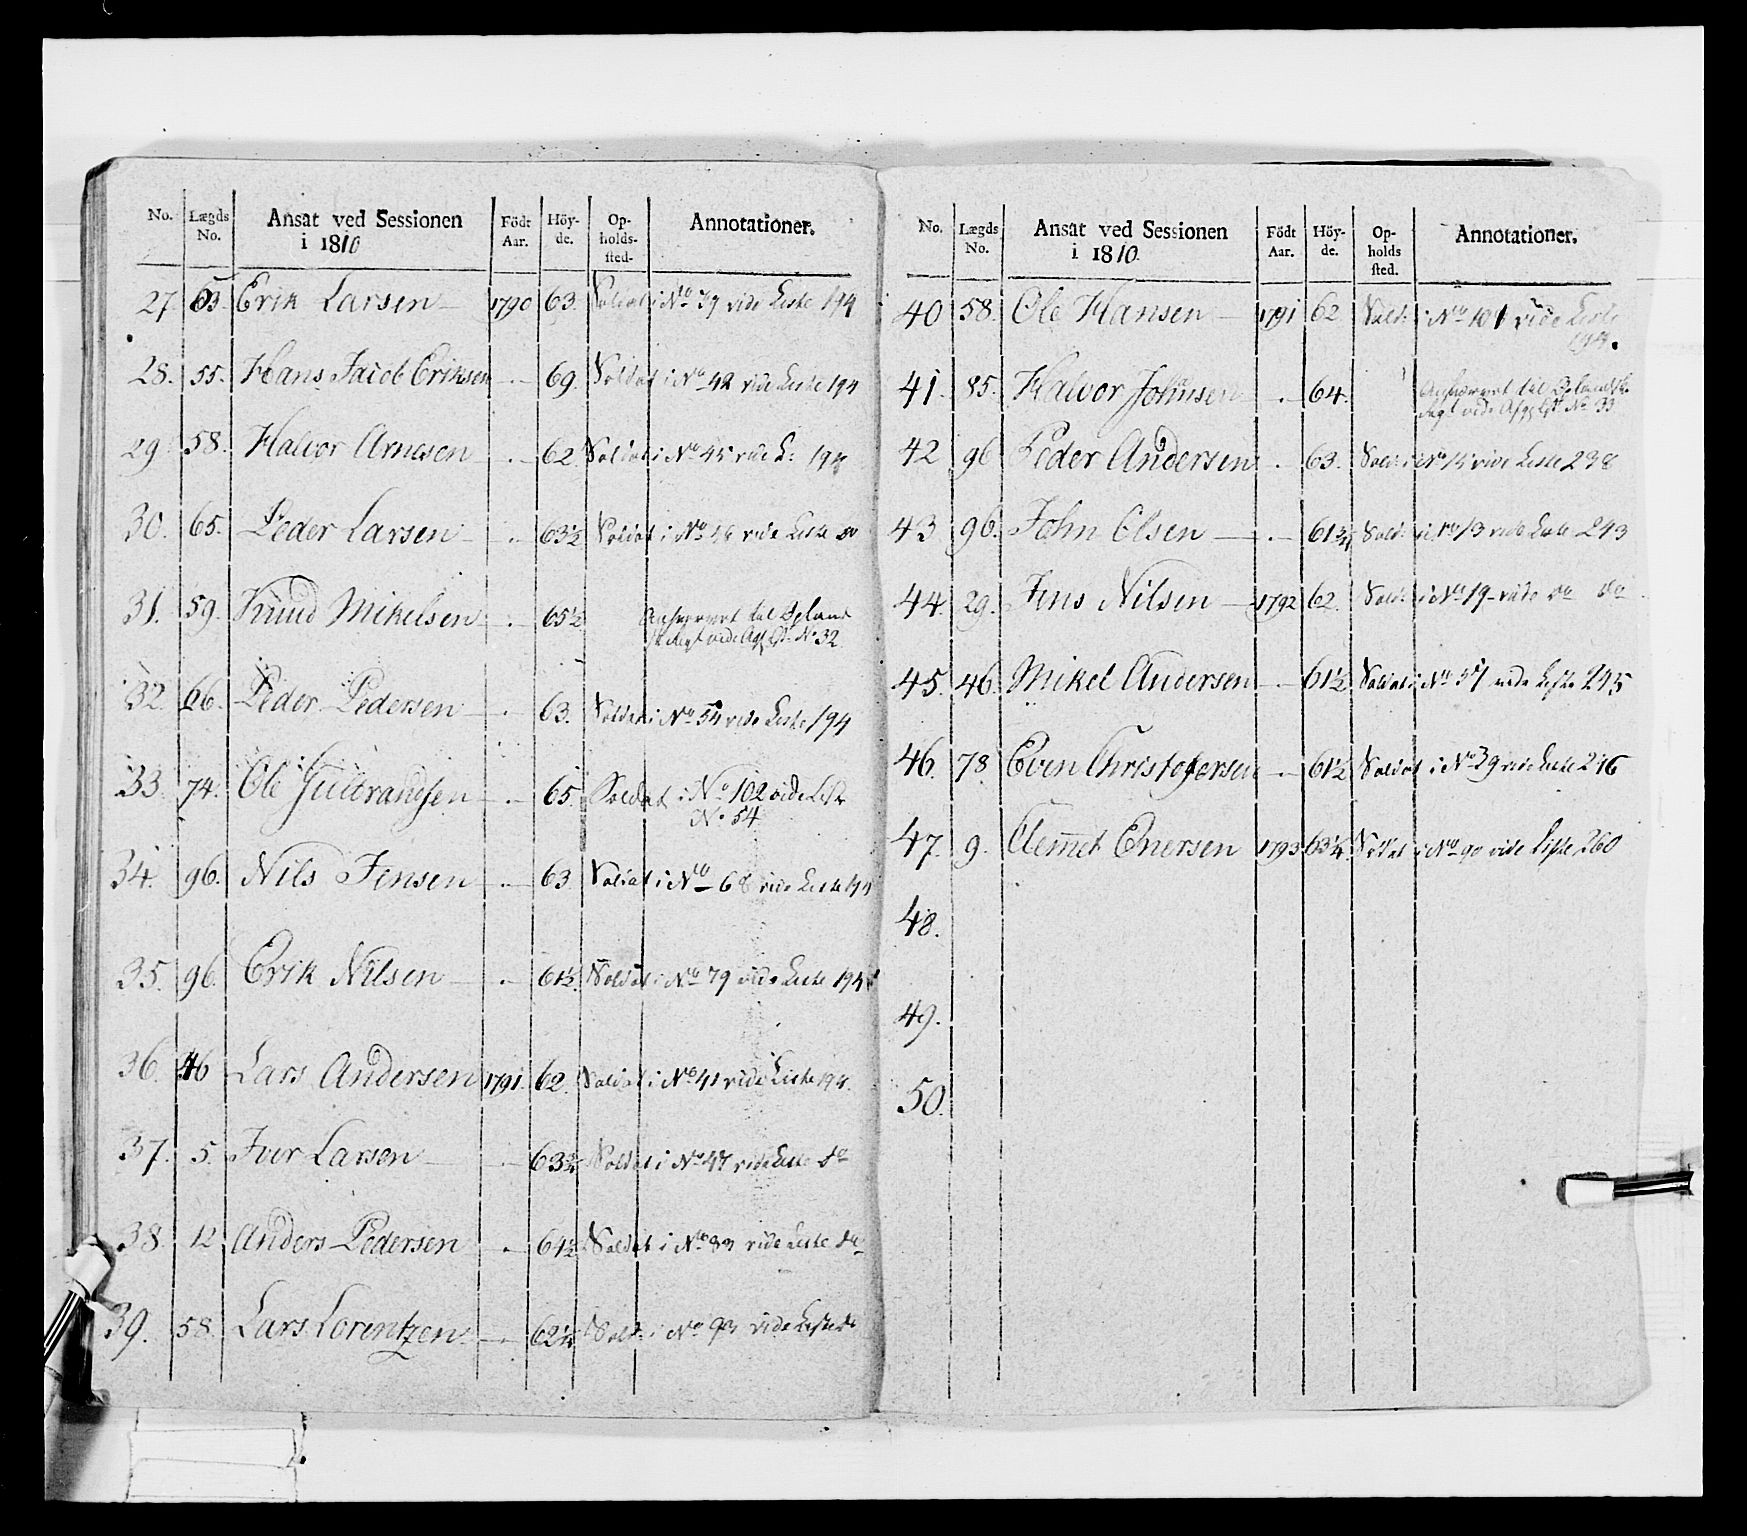 No. Lægds No. Ansat ved Sessionen i 1810 Födt Aar. Höy-de. Op-holds-sted. Annotationer.
27. 63. Erik Larsen 1790 63. Soldat i No 39 vide Liste 194
28. 55. Hans Jacob Eriksen - 69. Soldat i No 42 vide Liste 194
29. 58. Halvor Arnesen - 62. Soldat i No 45 vide L: 194
30. 65. Peder Larsen - 63½ Soldat i No 46 vide Liste do
31. 59. Knud Mikelsen - 65½ til
vide No 32
32. 66. Peder Pedersen - 63. Soldat i No 54 vide Liste 194
33. 74. Ole Gulbrandsen - 65. Soldat i No 102 vide Liste
No 54
34. 96. Nils Jensen - 63. Soldat i No 68 vide Liste 194
35. 96. Erik Nilsen - 61½. Soldat i No 79 vide Liste 194
36. 46 Lars Andersen 1791. 62. Soldat i No 41 vide Liste 194.
37. 5. Iver Larsen - 63½ Soldat i No 47 vide Liste do
38. 12 Anders Pedersen - 61½ Soldat i No 83 vide Liste do
39. 58. Lars Lorentzen - 62¼ Sold: i No 93 vide Liste do
No. Lægds No. Ansat ved Sessionen i 1810. Födt Aar. Höy-de. Op-holds sted. Annotationer.
40 58. Ole Hansen 1791 62 Sold: i No 101 vide Liste
194.
41. 85. Halvor Johnsen - 64. til
vide No 33
42 96 Peder Andersen - 63. Sold: i No 15 vide Liste 238
43. 96. John Olsen - 61¾ Sold: i No 13 vide Liste 243
44. 29. Jens Nilsen 1792 62. Sold: i No 19 vide do do
45. 46. Mikel Andersen - 61½ Soldat i No 37 vide Liste 245
46. 78. Even Christofersen - 61½ Soldat i No 39 vide Liste 246
47. 9. Clemet Enersen 1793 63¼ Soldat i No 90 vide Liste 260
48.
49.
50.